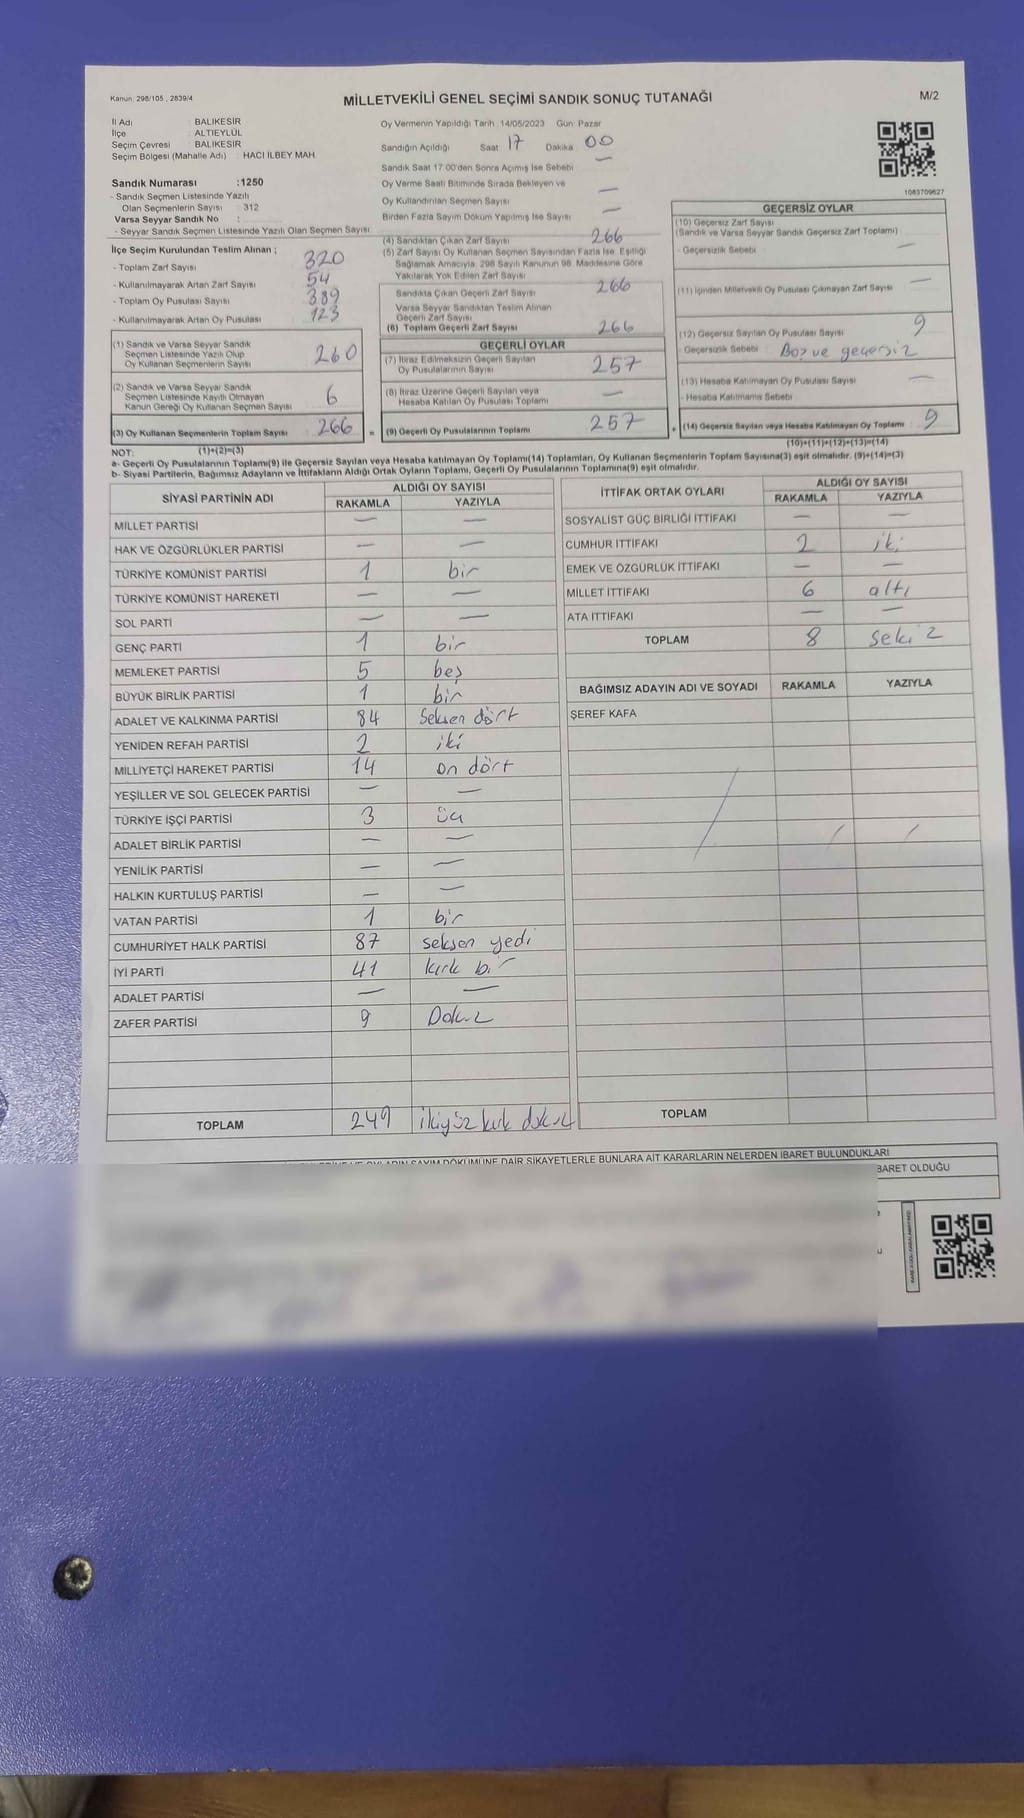 Kanun: 298/105 , 2839/4
MİLLETVEKİLİ GENEL SEÇİMİ SANDIK SONUÇ TUTANAĞI
M/2
İl Adı : BALIKESİR
İlçe : ALTIEYLÜL
Seçim Çevresi : BALIKESİR
Seçim Bölgesi (Mahalle Adı) : HACI İLBEY MAH.
Sandık Numarası :1250
- Sandık Seçmen Listesinde Yazılı
Olan Seçmenlerin Sayısı : 312
Varsa Seyyar Sandık No :
- Seyyar Sandık Seçmen Listesinde Yazılı Olan Seçmen Sayısı :
Oy Vermenin Yapıldığı Tarih :14/05/2023 Gün: Pazar
Sandığın Açıldığı Saat 17 Dakika 00
Sandık Saat 17:00'den Sonra Açımış İse Sebebi —
Oy Verme Saati Bitiminde Sırada Bekleyen ve
Oy Kullandırılan Seçmen Sayısı —
Birden Fazla Sayım Döküm Yapılmış İse Sayısı —
1083709627
İlçe Seçim Kurulundan Teslim Alınan ;
- Toplam Zarf Sayısı 320
- Kullanılmayarak Artan Zarf Sayısı 54
- Toplam Oy Pusulası Sayısı 389
- Kullanılmayarak Artan Oy Pusulası 123
(1) Sandık ve Varsa Seyyar Sandık
Seçmen Listesinde Yazılı Olup
Oy Kullanan Seçmenlerin Sayısı 260
(2) Sandık ve Varsa Seyyar Sandık
Seçmen Listesinde Kayıtlı Olmayan
Kanun Gereği Oy Kullanan Seçmen Sayısı 6
(3) Oy Kullanan Seçmenlerin Toplam Sayısı 266 =
(4) Sandıktan Çıkan Zarf Sayısı 266
(5) Zarf Sayısı Oy Kullanan Seçmen Sayısından Fazla İse, Eşitliği
Sağlamak Amacıyla, 298 Sayılı Kanunun 98. Maddesine Göre
Yakılarak Yok Edilen Zarf Sayısı
Sandıkta Çıkan Geçerli Zarf Sayısı 266
Varsa Seyyar Sandıktan Teslim Alınan
Geçerli Zarf Sayısı
(6) Toplam Geçerli Zarf Sayısı 266
GEÇERLİ OYLAR
(7) İtiraz Edilmeksizin Geçerli Sayılan
Oy Pusulalarının Sayısı 257
(8) İtiraz Üzerine Geçerli Sayılan veya
Hesaba Katılan Oy Pusulası Toplamı —
(9) Geçerli Oy Pusulalarının Toplamı 257 +
GEÇERSİZ OYLAR
(10) Geçersiz Zarf Sayısı
(Sandık ve Varsa Seyyar Sandık Geçersiz Zarf Toplamı)
- Geçersizlik Sebebi —
(11) İçinden Milletvekili Oy Pusulası Çıkmayan Zarf Sayısı —
(12) Geçersiz Sayılan Oy Pusulası Sayısı 9
- Geçersizlik Sebebi Boş ve geçersiz
(13) Hesaba Katılmayan Oy Pusulası Sayısı —
- Hesaba Katılmama Sebebi
(14) Geçersiz Sayılan veya Hesaba Katılmayan Oy Toplamı 9
NOT: (1)+(2)=(3) (10)+(11)+(12)+(13)=(14)
a- Geçerli Oy Pusulalarının Toplamı(9) ile Geçersiz Sayılan veya Hesaba katılmayan Oy Toplamı(14) Toplamları, Oy Kullanan Seçmenlerin Toplam Sayısına(3) eşit olmalıdır. (9)+(14)=(3)
b- Siyasi Partilerin, Bağımsız Adayların ve İttifakların Aldığı Ortak Oyların Toplamı, Geçerli Oy Pusulalarının Toplamına(9) eşit olmalıdır.
SİYASİ PARTİNİN ADI ALDIĞI OY SAYISI
RAKAMLA YAZIYLA
MİLLET PARTİSİ — —
HAK VE ÖZGÜRLÜKLER PARTİSİ — —
TÜRKİYE KOMÜNİST PARTİSİ 1 bir
TÜRKİYE KOMÜNİST HAREKETİ — —
SOL PARTİ — —
GENÇ PARTİ 1 bir
MEMLEKET PARTİSİ 5 beş
BÜYÜK BİRLİK PARTİSİ 1 bir
ADALET VE KALKINMA PARTİSİ 84 Seksen dört
YENİDEN REFAH PARTİSİ 2 iki
MİLLİYETÇİ HAREKET PARTİSİ 14 on dört
YEŞİLLER VE SOL GELECEK PARTİSİ — —
TÜRKİYE İŞÇİ PARTİSİ 3 üç
ADALET BİRLİK PARTİSİ — —
YENİLİK PARTİSİ — —
HALKIN KURTULUŞ PARTİSİ — —
VATAN PARTİSİ 1 bir
CUMHURİYET HALK PARTİSİ 87 seksen yedi
İYİ PARTİ 41 kırk bir
ADALET PARTİSİ — —
ZAFER PARTİSİ 9 Dokuz
TOPLAM 249 ikiyüz kırk dokuz
İTTİFAK ORTAK OYLARI ALDIĞI OY SAYISI
RAKAMLA YAZIYLA
SOSYALİST GÜÇ BİRLİĞİ İTTİFAKI — —
CUMHUR İTTİFAKI 2 iki
EMEK VE ÖZGÜRLÜK İTTİFAKI — —
MİLLET İTTİFAKI 6 altı
ATA İTTİFAKI — —
TOPLAM 8 Sekiz
BAĞIMSIZ ADAYIN ADI VE SOYADI RAKAMLA YAZIYLA
ŞEREF KAFA
TOPLAM
SAYIM DÖKÜMÜNE DAİR ŞİKAYETLERLE BUNLARA AİT KARARLARIN NELERDEN İBARET BULUNDUKLARI
BARET OLDUĞU